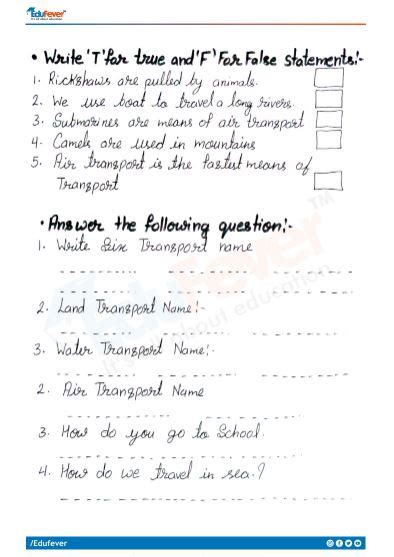 EduFever
It's all about education
• Write 'T' for true and 'F' For False statements:-
1. Rickshaws are pulled by animals.
2. We use boat to travel a long rivers.
3. Submarines are means of air transport
4. Camels are used in mountains
5. Air transport is the fastest means of
Transport
• Answer the following question:-
1. Write Six Transport name
2. Land Transport Name:-
3. Water Transport Name:-
2. Air Transport Name
3. How do you go to School.
4. How do we travel in sea.?
EduFever
It's all about education
TM
/Edufever